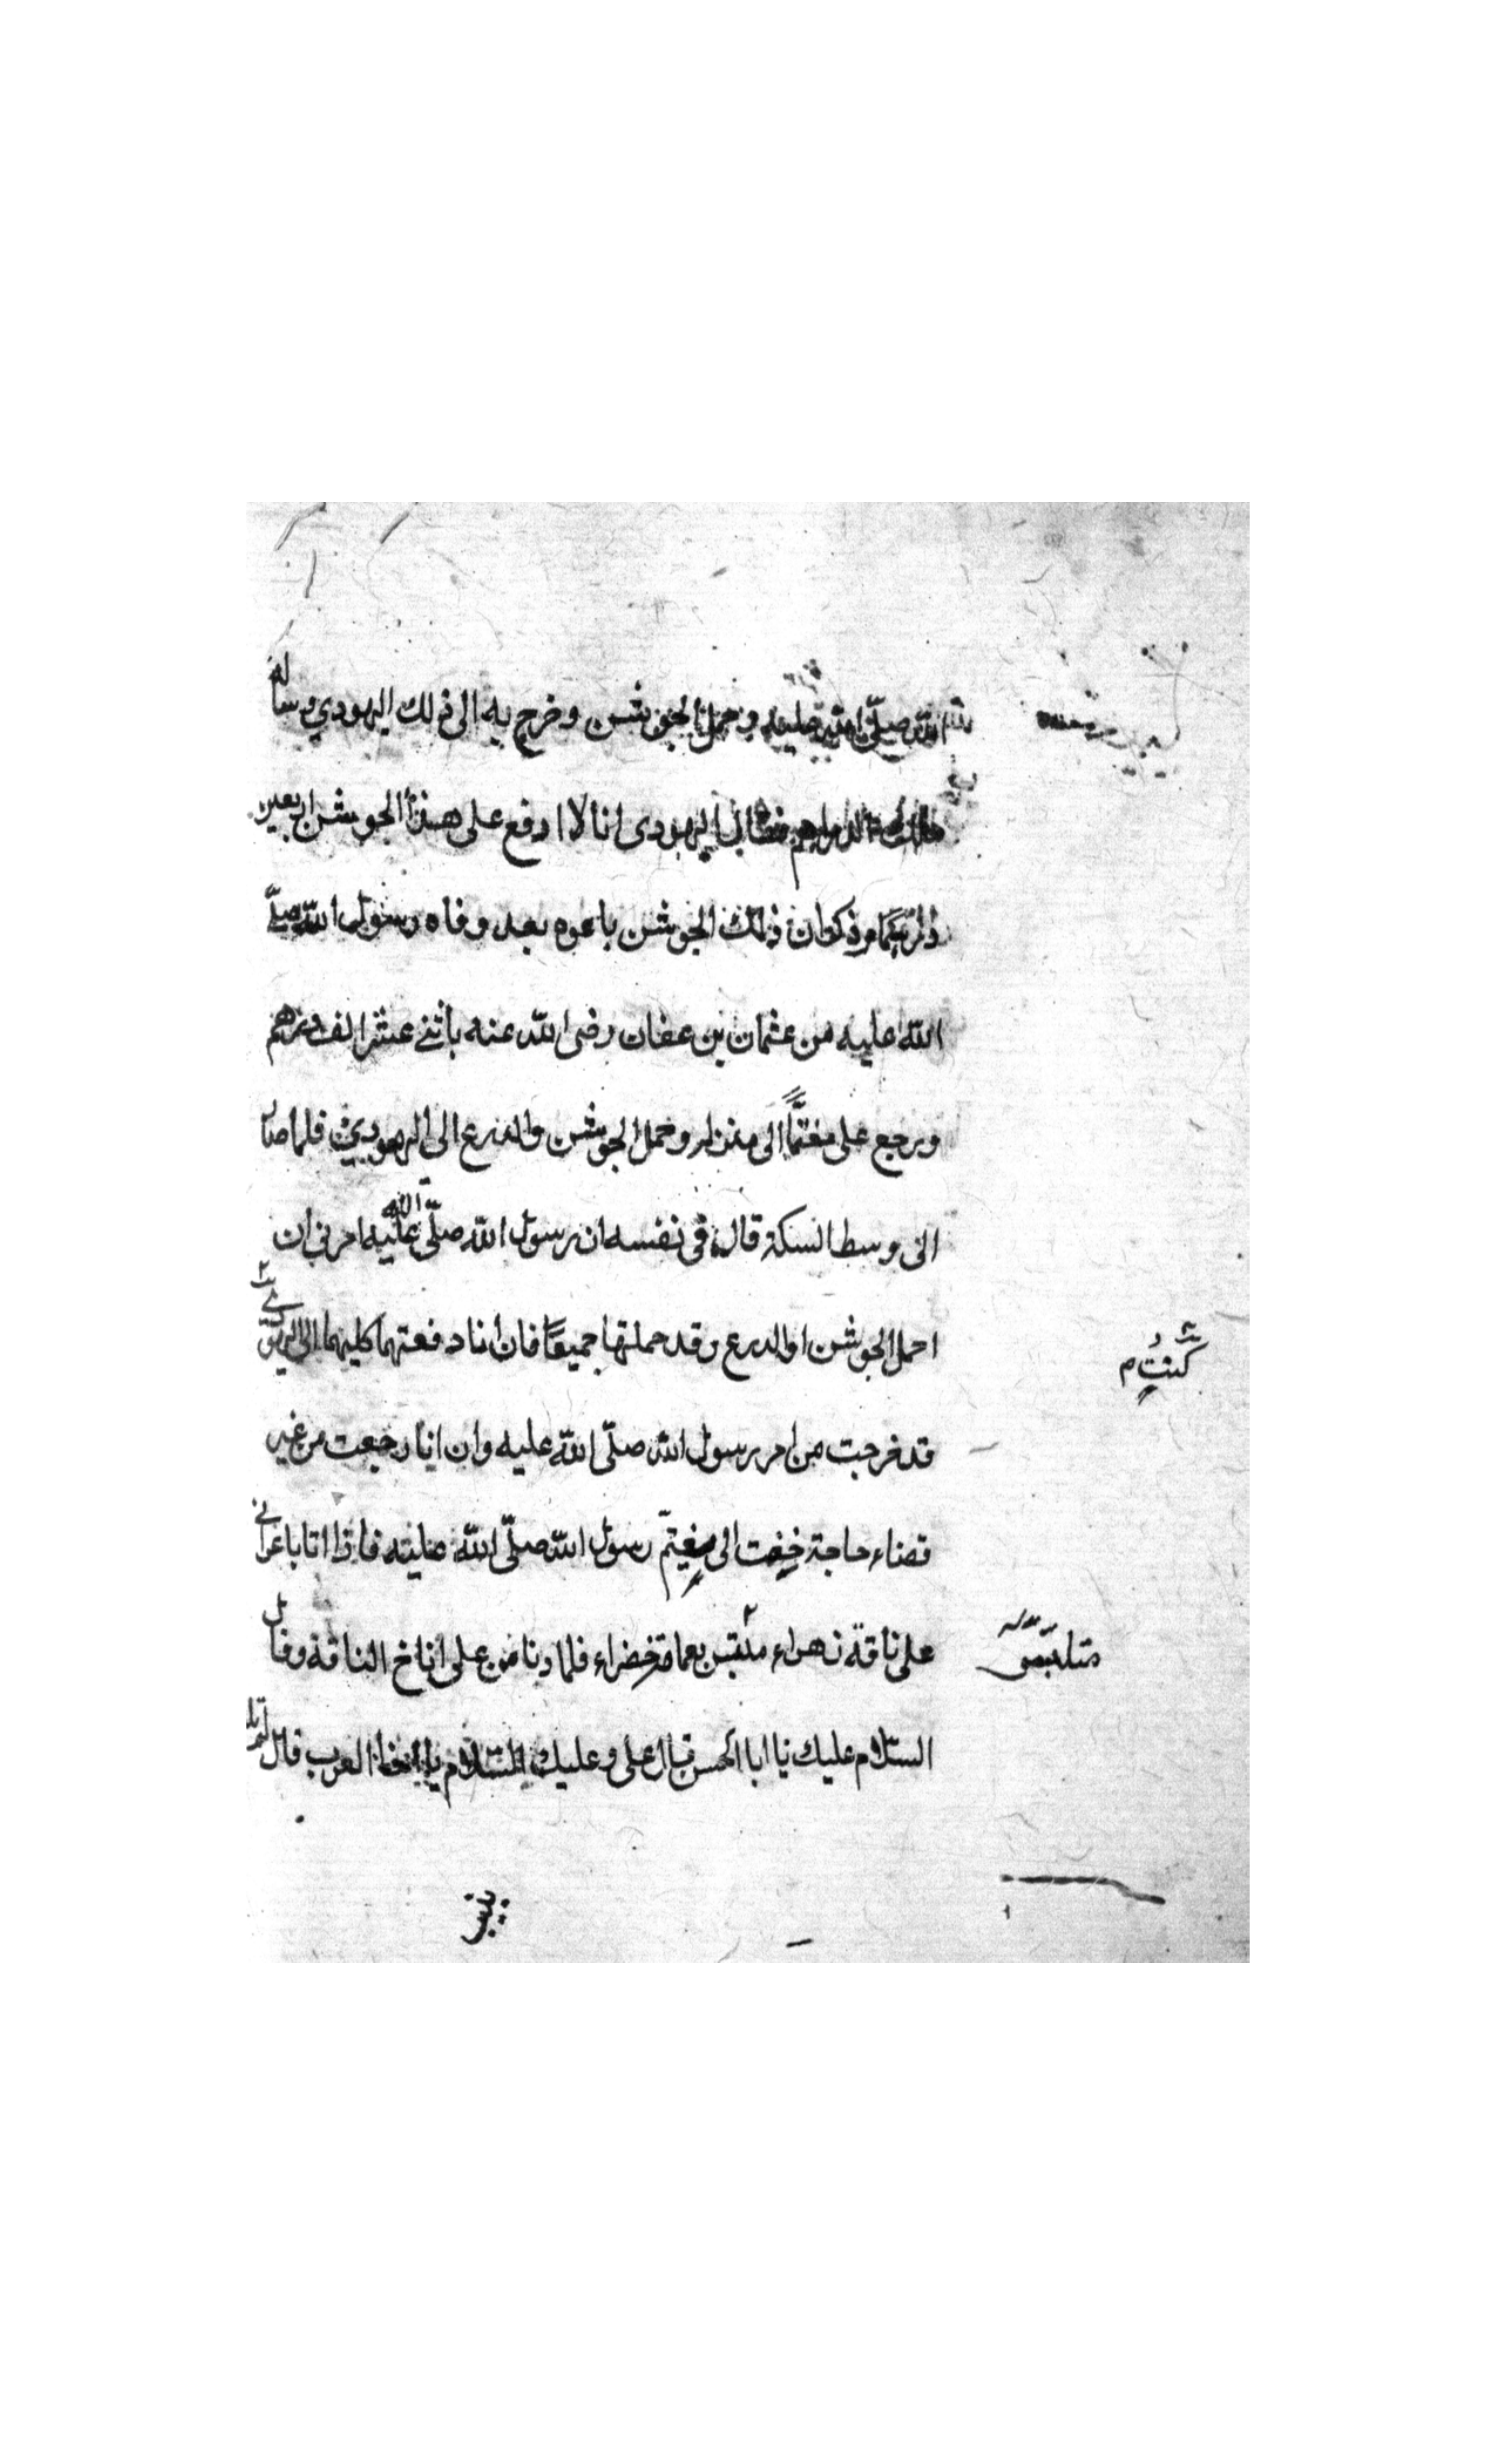 الله صلّى الله عليه وحمل الجوشن وخرج به الى ذلك اليهودي وساله
تلك الدراهم فقال اليهودى انا لا ادفع على هذا الجوشن اربعين
وذكر ان ذلك الجوشن باعوه بعد وفاه رسول الله صلّى
الله عليه من عثمان بن عفان رضى الله عنه باثنى عشر الف درهم
ورجع على مغتمّاً الى منزله وحمل الجوشن والدرع الى اليهودي فلما صار
الى وسط السكة قال فى نفسه ان رسول الله صلّى الله عليه امرنى ان
احمل الجوشن او الدرع وقد حملتها جميعًا فان انا دفعتهما كليهما الى
كنت م
قد خرجت من امر رسول الله صلّى الله عليه وان انا رجعت من غير
قضاء حاجة خفت ان يغتمّ رسول الله صلّى الله عليه فاذا انا باعرابي
على ناقة زهراء بعمامة خضراء فلما دنا من على اناخ الناقة وقال
السلام عليك يا ابا الحسن قال على وعليك السلام يا اخا العرب قال